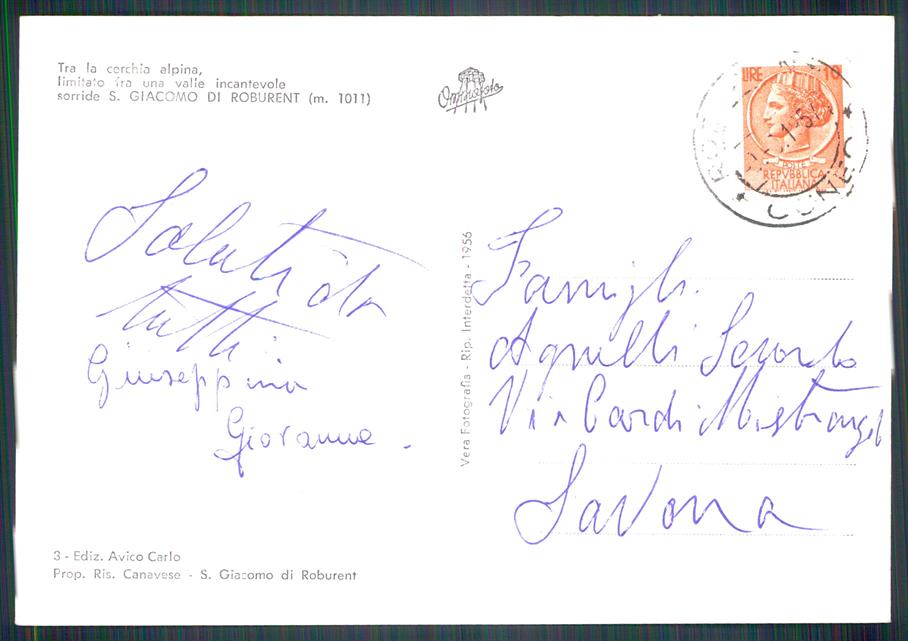 Tra la cerchia alpina,
limitato fra una valle incantevole
sorride S. GIACOMO DI ROBURENT (m. 1011)
Omniafoto
LIRE 10
POSTE
REPVBBLICA
ITALIANA
CUNEO
Saluti da
tutti
Giuseppina
Giovanna.
Vera Fotografia - Rip. Interdetta - 1956
Famigli.
Agnelli
Via Cardi Mistrangelo
Savona
3 - Ediz. Avico Carlo
Prop. Ris. Canavese - S. Giacomo di Roburent